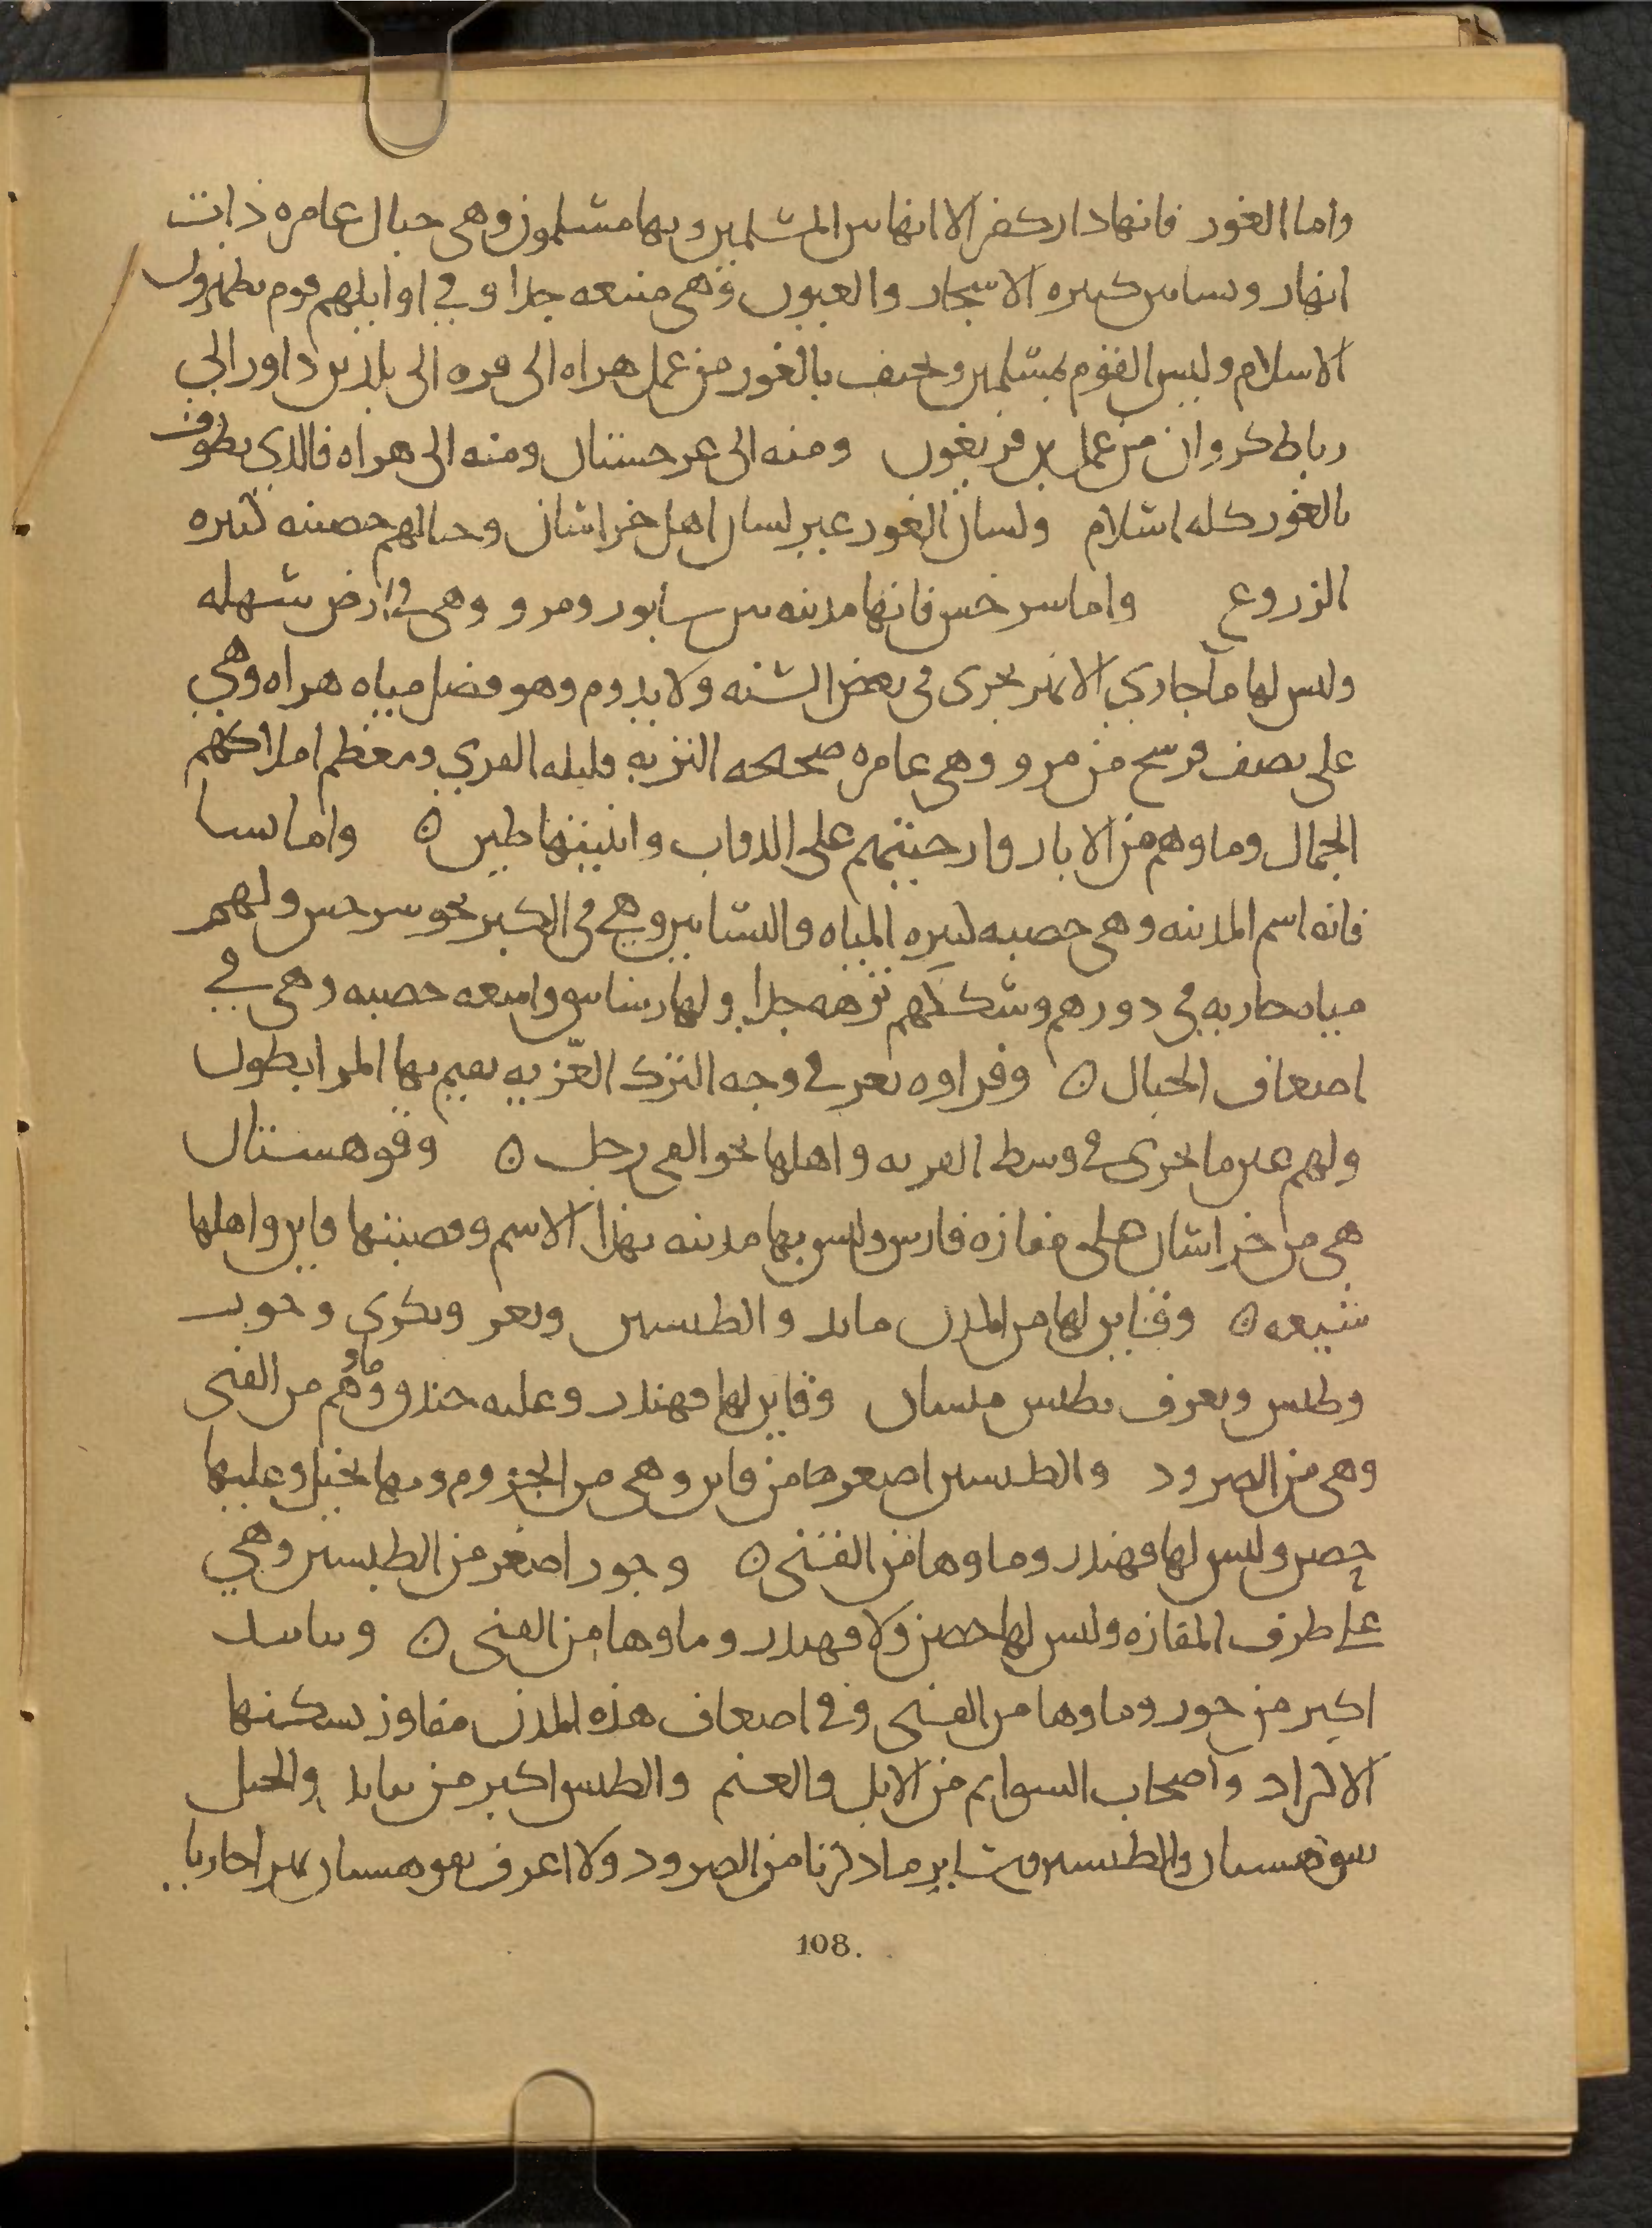 واما الغور فانها دار كفر الا انها بين المسلمين وبها مسلمون وهي جبال عامره ذات
انهار وبساتين كثيره الاشجار والعيون وهي منيعه جدا وفي اوايلهم قوم يظهرون
الاسلام وليس القوم بمسلمين ويحيف بالغور من عمل هراه الى فره الى بلدين داور الي
رباط كروان من عمل بن فريغون ومنه الى غرجستان ومنه الى هراه فالذي يطوف
بالغور كله اسلام ولسان الغور غير لسان اهل خراسان وجبالهم خصبه كثيره
الزروع واما سرخس فانها مدينه بين سابور ومرو وهي في ارض سهله
وليس لها ما جاري الا نهر يجرى في بعض السنه ولا يدوم وهو فضل مياه هراه وهي
على نصف فرسخ من مرو وهي عامره صحيحه التربه قليله القري ومعظم املاكهم
الجمال وماوهم من الابار وارحيتهم على الدواب وابنيتها طين ه واما نسا
فانه اسم المدينه وهي خصبه كثيره المياه والبساتين وهي في الكبر نحو سرخس ولهم
مياه جاريه في دورهم وسككهم نزهه جدا ولها رساتيق واسعه خصبه وهي في
اضعاف الجبال ه وفراوه ثغر في وجه الترك الغزيه يقيم بها المرابطون
ولهم عين ما يجرى في وسط القريه واهلها نحو الفي رجل ه وقوهستان
هي من خراسان على مفازه فارس وليس بها مدينه بهذا الاسم وقصبتها قاين واهلها
شيعه ه وقاين لها من المدن يابد والطبسين وتعر وبكرى وخور
وطبس ويعرف بطبس مسينان وقاين لها قهندز وعليه خندق وماوهم من القنى
وهي من الصرود والطبسين اصغرها من قاين وهي من الجروم وبها نخيل وعليها
حصن وليس لها قهندز وماوها من القنى ه وجور اصغر من الطبسين وهي
على طرف المفازه وليس لها حصن ولا قهندز وماوها من القنى ه ويبابد
اكبر من خور وماوها من القنى وفي اضعاف هذه المدن مفاوز يسكنها
الاكراد واصحاب السوايم من الابل والغنم والطبس اكبر من يبابد والنخيل
بقوهستان والطبسين وساير ما ذكرنا من الصرود ولا اعرف بقوهستان نهرا جاريا
108.